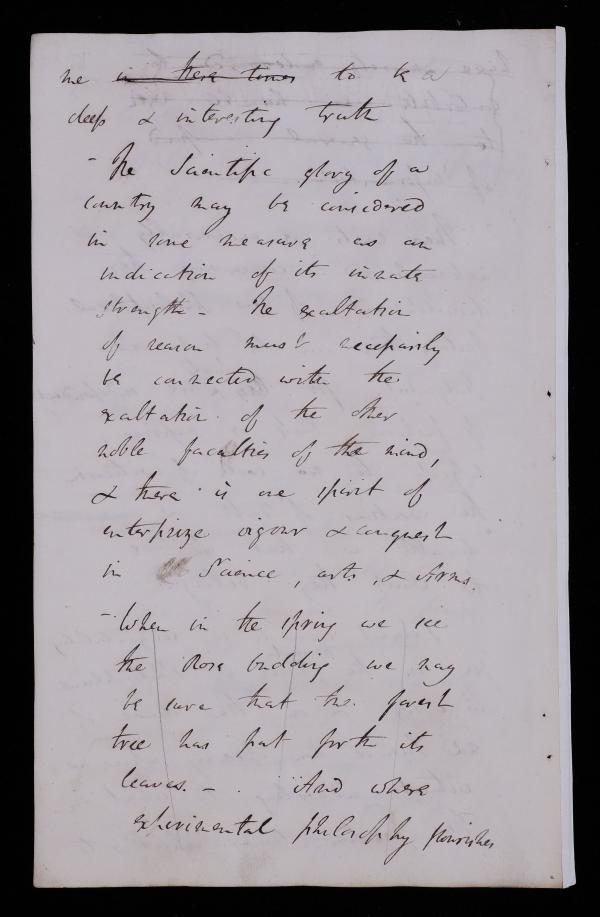 me in these times to be a
deep & interesting truth
- The Scientific glory of a
country may be considered
in some measure as an
indication of its innate
strength - The exaltation
of reason must necessarily
be connected with the
exaltation of the other
noble faculties of the mind,
& there is one spirit of
enterprize vigour & conquest
in Science, arts, & Arms.
- When in the spring we see
the Rose budding we may
be sure that the forest
tree has put forth its
leaves. - And where
experimental philosophy flourishes